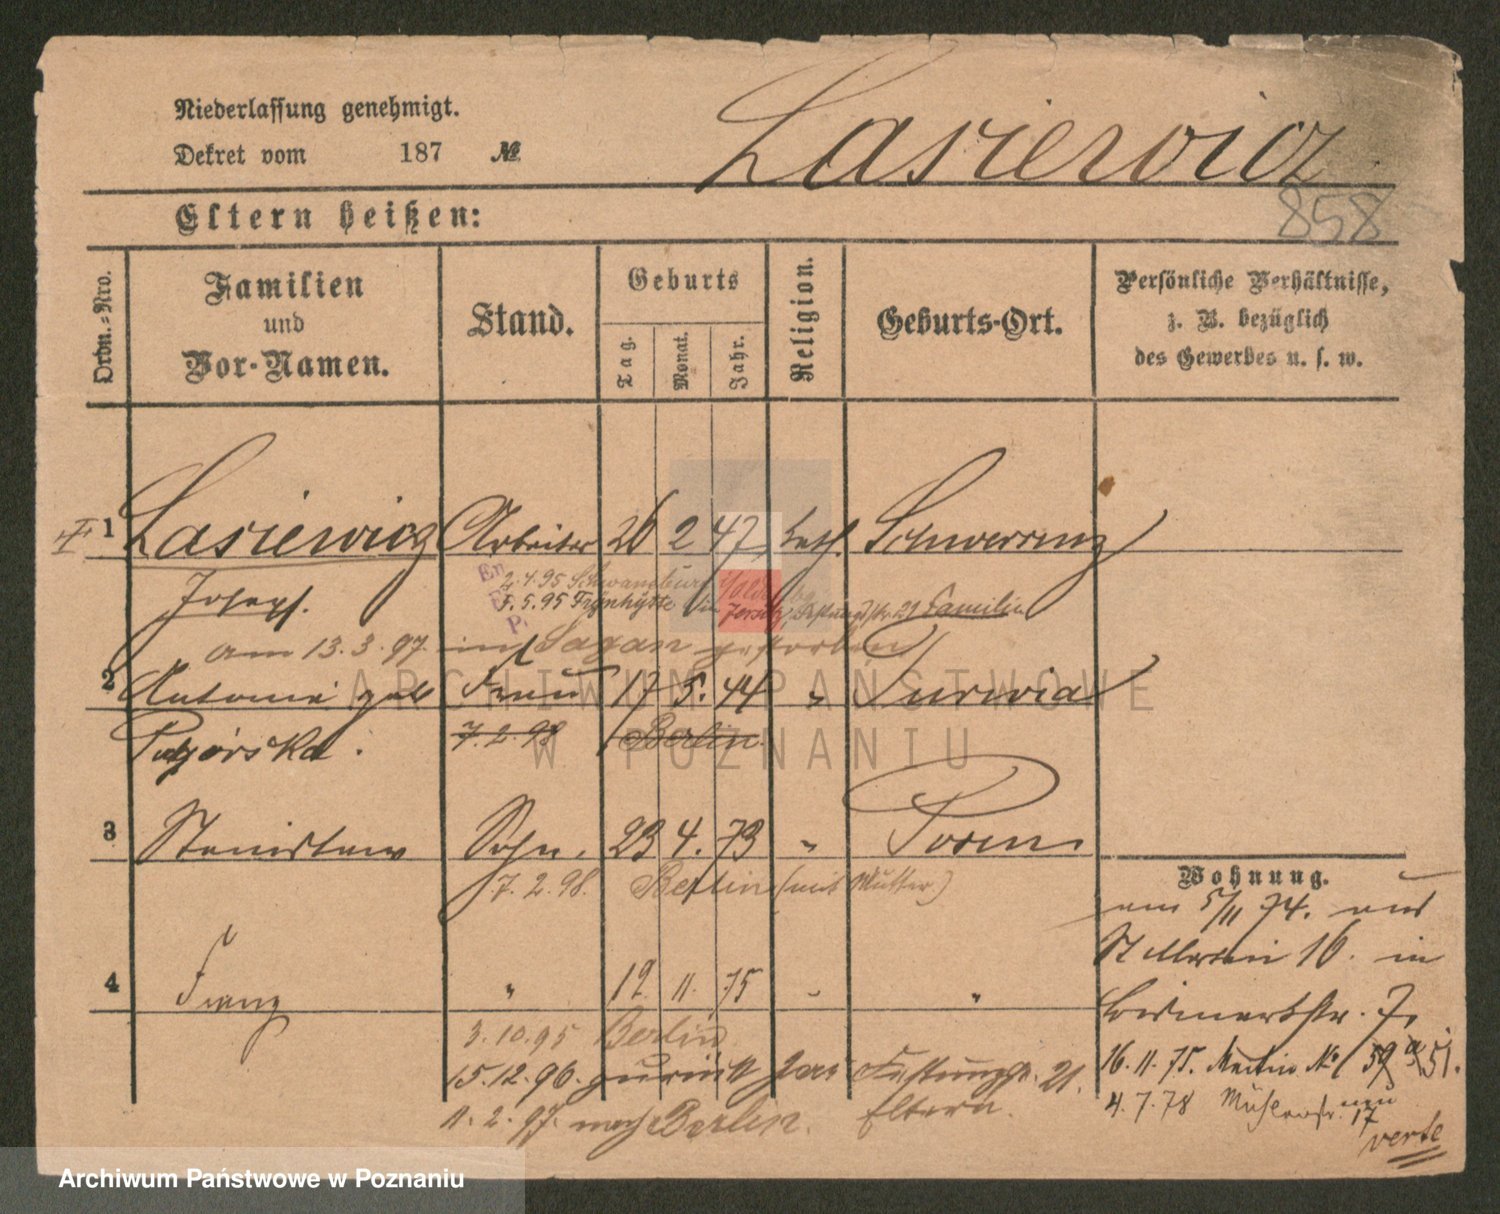 Niederlassung genehmigt.
Dekret vom 187 №
Lasiewicz
858
Eltern heißen:
Ordn.-Nro.
Familien
und
Vor-Namen.
Stand.
Geburts
Tag.
Monat.
Jahr.
Religion.
Geburts-Ort.
Persönliche Verhältnisse,
z. B. bezüglich
des Gewerbes u. s. w.
1 Lasiewicz Arbeiter 26 2 47 kath. Schwersenz
2.4.95
Joseph. 5.5.95 in Jersitz, 21 Familie
am 13.3.97. in Sagan gestorben
2 Antonie geb Frau 17 5. 44 "
Pogórska. 7.2.98 Berlin.
3 Stanislaw Sohn. 23 4. 73 " Posen
7.2.98. Berlin (mit Mutter)
Wohnung.
am 5/11 74. aus
St Martin 16. in
4 Franz " 12 11. 75 " "
Bismarkstr. 7.
3.10.95 Berlin
15.12.96. zurück Jers Festungsstr. 21.
16.11.75. Martin № 59 51.
11.2.97. nach Berlin. Eltern.
4.7.78 Mühlenstr. 17
verte
ARCHIWUM PAŃSTWOWE
W POZNANIU
Archiwum Państwowe w Poznaniu